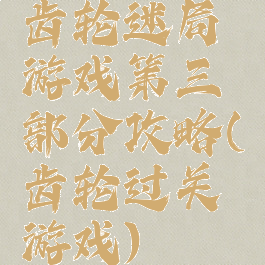 齿轮逃局
游戏第三
部分攻略(
齿轮过关
游戏)